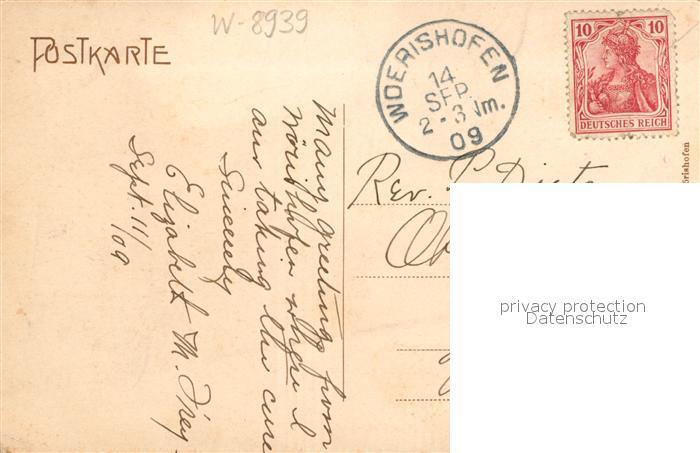 W-8939
POSTKARTE
WOERISHOFEN
14
SEP.
2-3 Nm.
09
10 10
DEUTSCHES REICH
Many greetings from
Wörishofen where I
am taking the cure
Sincerely
Elizabeth M. Frey
Sept. 11/09
Rev. P.
privacy protection
Datenschutz